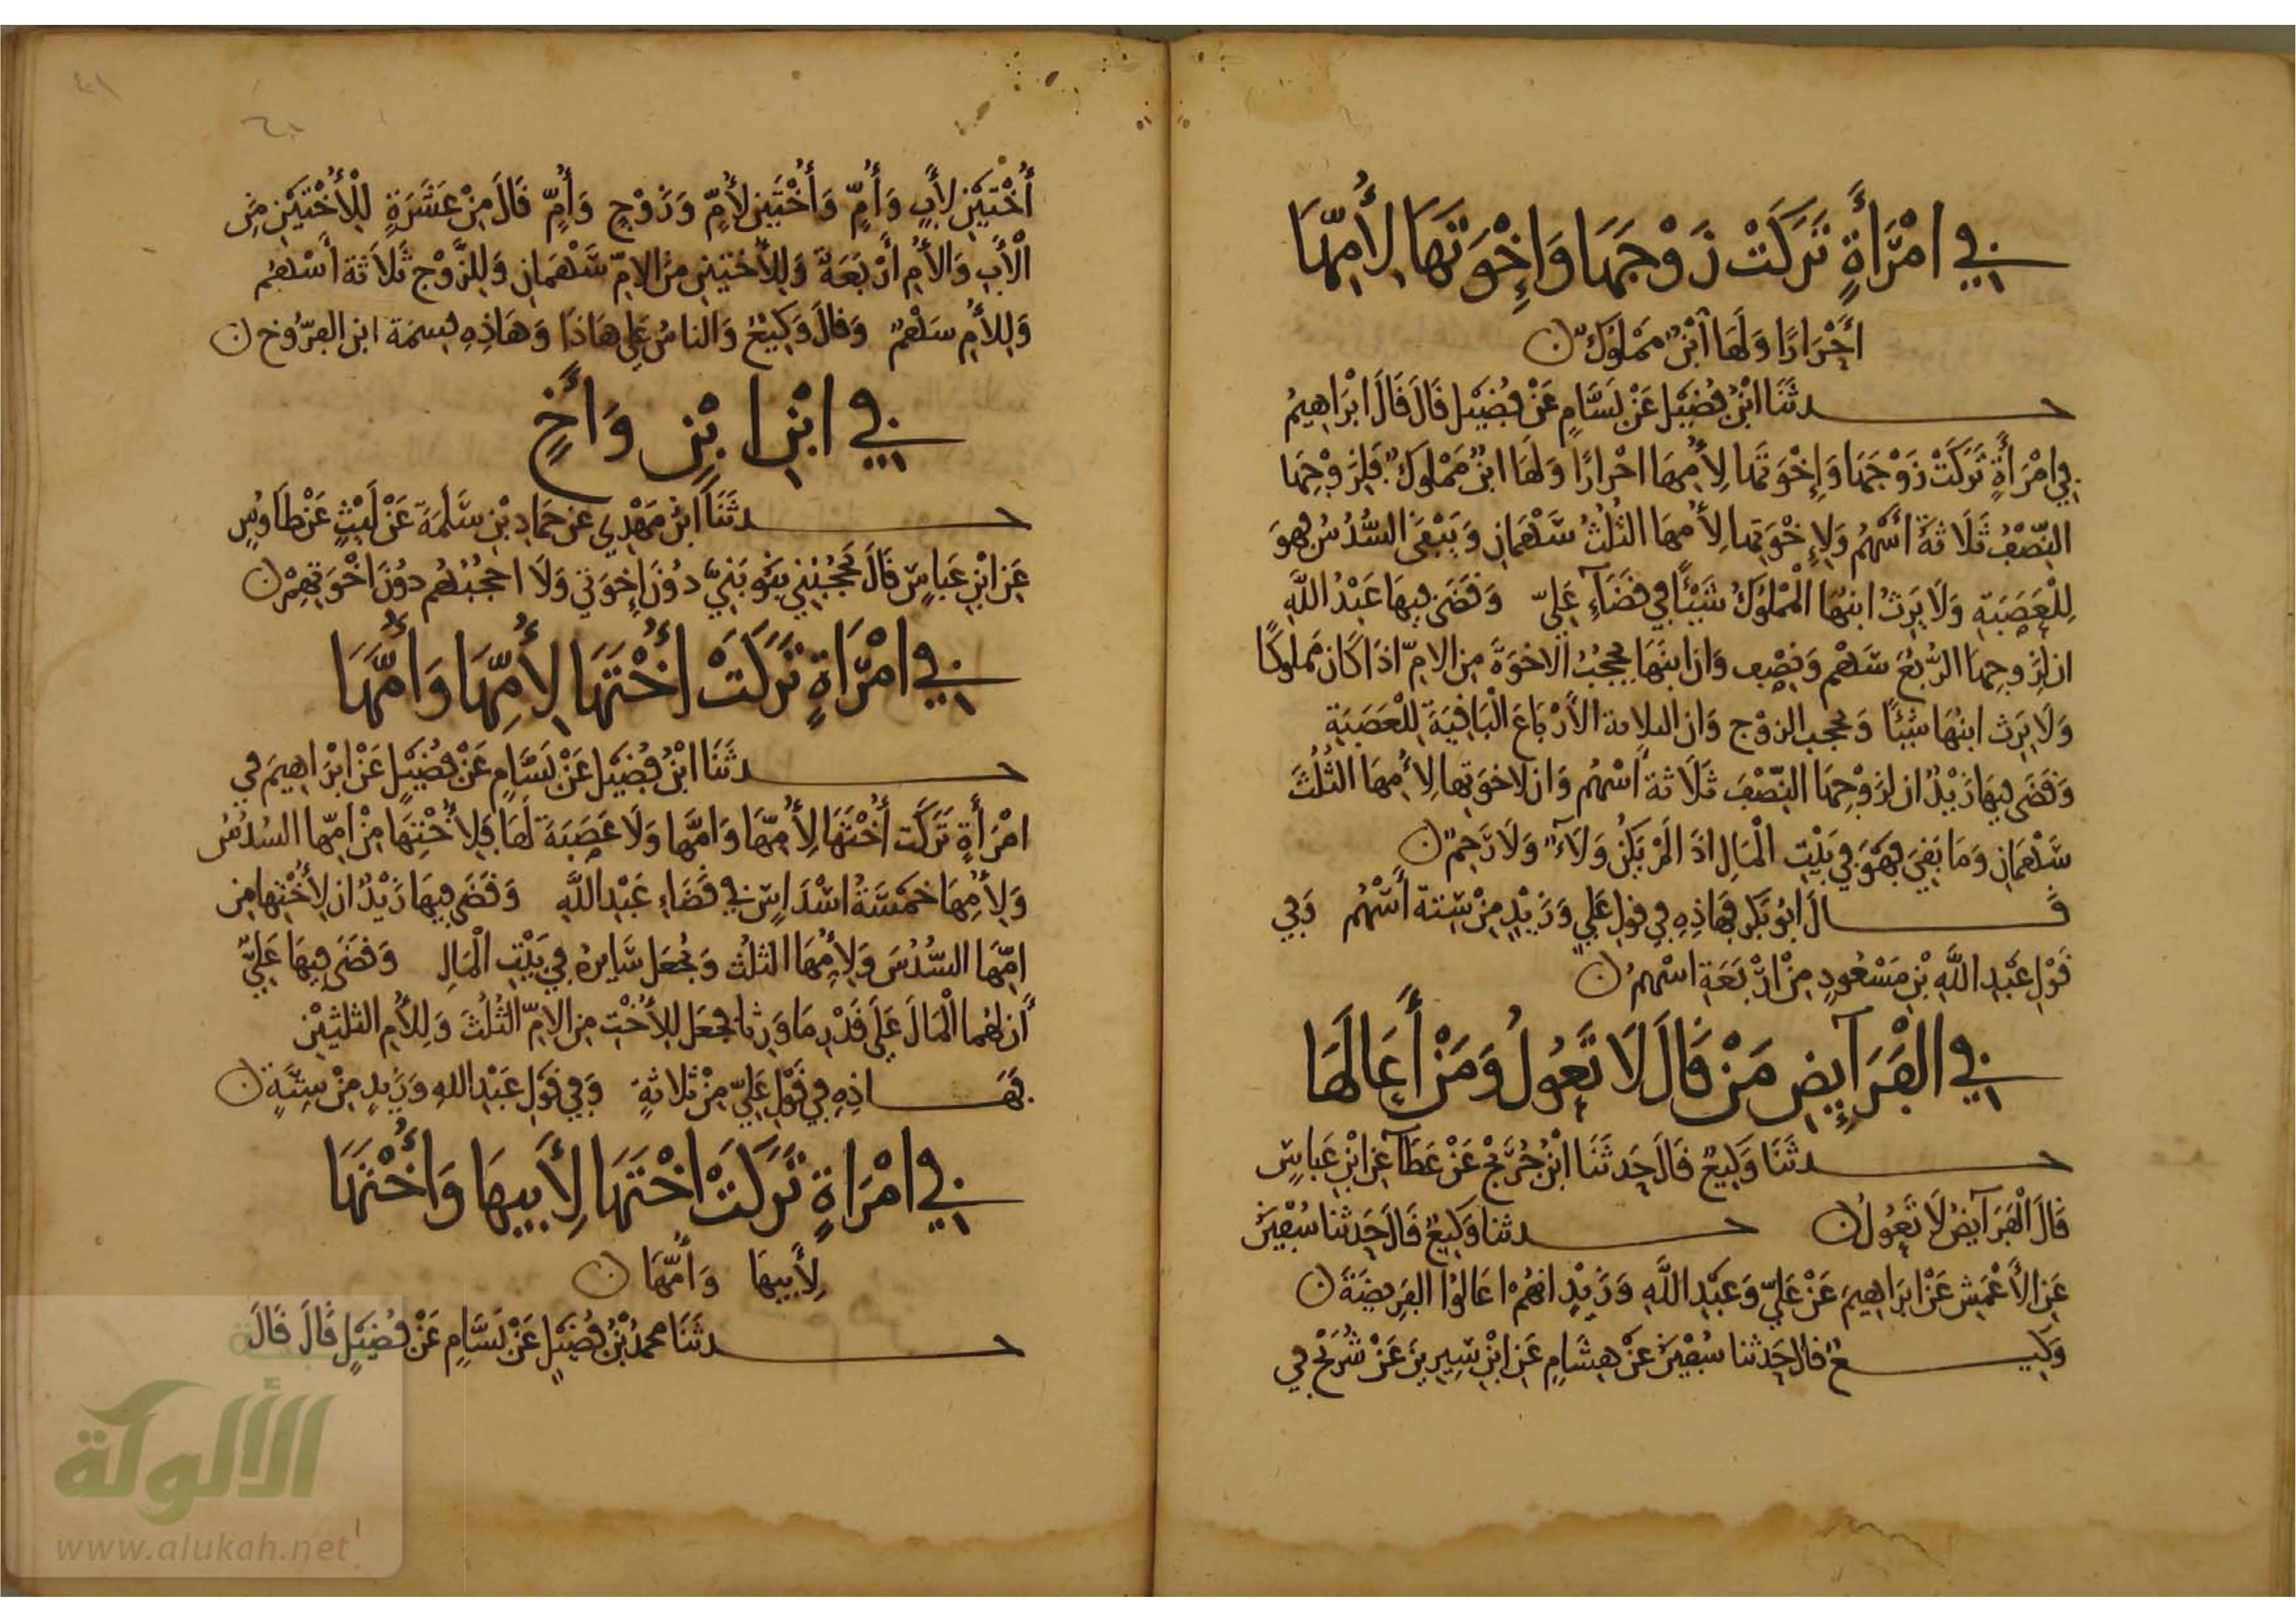 في امْرَأَةٍ تَرَكَتْ زَوْجَهَا وَإِخْوَتَهَا لِأُمِّهَا
أَحْرَارًا وَلَهَا ابْنٌ مَمْلُوكٌ
حدثَنَا ابْنُ فُضَيْلٍ عَنْ بَسَّامٍ عَنْ فُضَيْلٍ قَالَ قَالَ ابْرَاهِيمُ
فِي امْرَأَةٍ تَرَكَتْ زَوْجَهَا وَإِخْوَتَهَا لِأُمِّهَا احْرَارًا وَلَهَا ابْنٌ مَمْلُوكٌ فَلِزَوْجِهَا
النِّصْفُ ثَلَاثَةُ أَسْهُمٍ وَلِإِخْوَتِهَا لِأُمِّهَا الثُلُثُ سَهْمَانِ وَيَبْقَى السُّدُسُ فهوَ
لِلْعَصَبَةِ وَلَا يَرِثُ ابنُهَا الْمَمْلُوكُ شَيْئًا فِي قَضَاءِ عَلِيّ وَقَضَى فِيهَا عَبْدُ اللَّهِ
ان لِزوجِهَا الرُّبعَ سَهْم وَنِصْف وَان ابنَهَا يحْجُبُ الاخوَةَ مِن الامِّ اذَا كَان مَملوكًا
وَلَا يَرِث ابنُهَا شَيْئًا وَيحجب الزوْج وَان الثلاثة الأَرْبَاعَ الْبَاقِيَةَ لِلْعَصَبَةِ
وَقَضَى فِيهَا زَيْدٌ ان لِزَوْجِهَا النِّصْفَ ثَلَاثةُ أَسْهُمٍ وَان لاخوَتِهَا لِأُمِّهَا الثُلُثَ
سَهْمَانِ وَمَا بَقِيَ فَهوَ فِي بَيْتِ الْمَالِ اذَا لَمْ يَكُنْ وَلَاءٌ وَلَا رَحِمٌ
قَالَ ابُو بَكْرٍ فَهَاذِهِ فِي قولِ عَلِيٍّ وَزَيْدٍ مِنْ سِتة أَسْهُمٍ وَفِي
قَوْلِ عَبْدِ اللَّهِ بْنِ مَسْعُودٍ مِنْ ارْبَعَةِ اسْهُمٍ
في الفَرَائِضِ مَنْ قَالَ لَا تَعُولُ وَمَنْ أَعَالَهَا
حدثَنَا وَكِيعٌ قَالَ حَدثَنَا ابْنُ جُرَيْجٍ عَنْ عَطَاء عَنِ ابْنِ عَبَاسٍ
قَالَ الْفَرَائِضُ لَا تَعُولُ حدثنا وَكِيعٌ قَالَ حَدثنا سُفْيَنُ
عَنِ الأَعْمَشِ عَنْ ابرَاهِيمَ عَنْ عَلِيٍّ وَعَبْدِ اللَّهِ وَزَيْدٍ انهُمْ اعَالُوا الفَرِيضَةَ
وَكِيعٌ قال حَدثنا سُفْيَنُ عَنْ هِشَامٍ عَنِ ابْنِ سِيرِينَ عَنْ شُرَيْحٍ فِي
أُخْتَيْنِ لِأَبٍ وَأُمٍّ وَأُخْتَيْنِ لأُمٍّ وَزَوْجٍ وَأُمٍّ قَالَ مِنْ عَشَرَةٍ لِلْأُخْتَيْنِ مِنَ
الْأَبِ وَالأُمِ أَرْبَعَةٌ وَلِلأُختَيْنِ مِنَ الامِّ سَهْمَانِ وَلِلزَّوْجِ ثَلَاثَة أَسْهُمٍ
وَلِلأُمِ سَهْمٌ وَقَالَ وَكِيعٌ وَالناسُ عَلَى هَاذَا وَهَاذِهِ قِسمَة ابن الفرُّوخ
في ابْنِ ابْنٍ وَأَخٍ
حدثَنَا ابْنُ مَهْدِي عَن حَمَادِ بْنِ سَلَمَةَ عَنْ لَيْثٍ عَنْ طَاوُسٍ
عَنِ ابْنِ عَبَاسٍ قَالَ يَحْجُبُنِي بَنُو بَنِيَّ دُونَ إِخوَتِي وَلَا احْجُبُهُم دُونَ اخْوَتِهِمْ
في امْرَأَةٍ تَرَكَتْ أُخْتَهَا لِأُمِّهَا وَأُمَّهَا
حدثَنَا ابْنُ فُضَيْلٍ عَنْ بَسَّامٍ عَنْ فُضَيْلٍ عَنْ ابْرَاهِيمَ فِي
امْرَأَةٍ تَرَكَت أُخْتَهَا لِأُمِّهَا وَامَّهَا وَلَا عَصَبَةَ لَهَا فَلِأُخْتِهَا مِنْ امِّهَا السُدُسُ
وَلِأُمِّهَا خَمْسَةُ اسْدَاسٍ فِي قَضَاءِ عَبْدِ اللَّهِ وَقَضَى فِيهَا زَيْدٌ ان لِأُخْتِهَا مِن
امِّهَا السُّدُسَ وَلِأُمِّهَا الثلُثَ وَيُجعَل سَايرُهُ فِي بَيْتِ الْمَالِ وَقَضَى فِيهَا عَلِيٌّ
أن لهُما الْمَالَ عَلَى قَدْرِ مَا وَرِثَا فجعَل لِلأُخْتِ مِن الامِّ الثُلُثَ وَلِلأُمِ الثلثيْنِ
فَهَاذِهِ فِي قَوْلِ عَلِيّ مِنْ ثَلاثةٍ وَفِي قَوْلِ عَبْدِ اللهِ وَزَيدٍ مِنْ سِتَّةٍ
في امْرَاةٍ تَرَكَتْ اخْتَهَا لِأَبِيهَا وَأُخْتَهَا
لِأَبِيهَا وَأُمِّهَا
حدثَنَا محمدُ بْنُ فُضَيْلٍ عَنْ بَسَّامٍ عَنْ فُضَيْلٍ قَالَ قَالَ
الألوكة
www.alukah.net